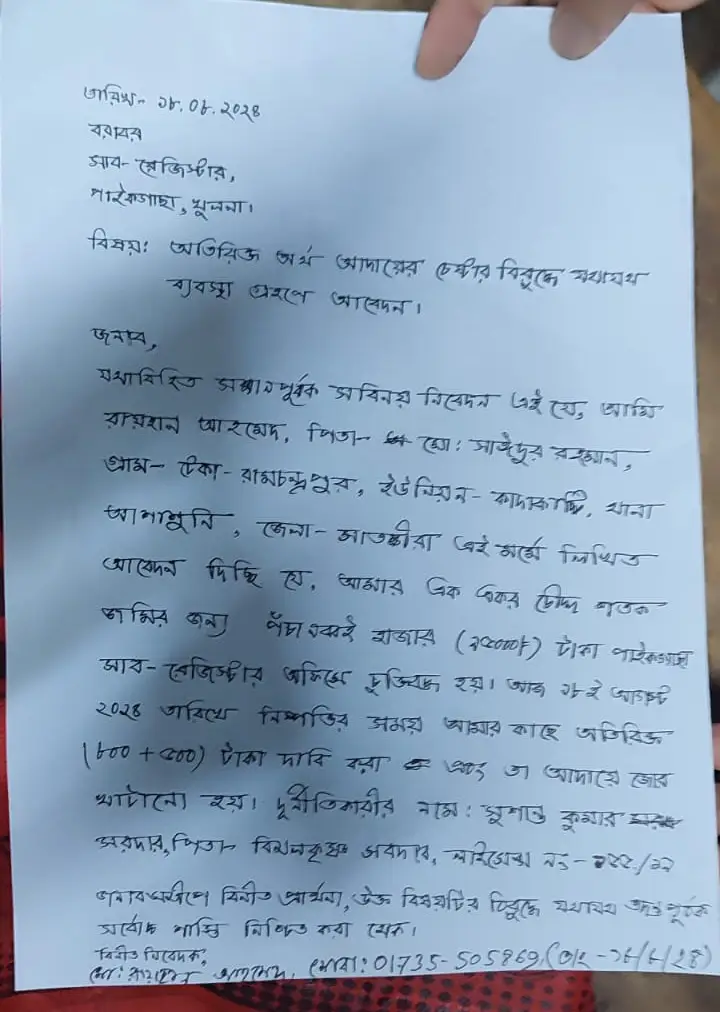 তারিখ- ১৮.০৮.২০২৪
বরাবর
সাব-রেজিস্টার,
পাইকগাছা, খুলনা।
বিষয়: অতিরিক্ত অর্থ আদায়ের চেষ্টার বিরুদ্ধে যথাযথ
ব্যবস্থা গ্রহণে আবেদন।
জনাব,
যথাবিহিত সম্মানপূর্বক সবিনয় নিবেদন এই যে, আমি
রায়হান আহমেদ, পিতা- মো: সাইদুর রহমান,
গ্রাম- টেকা-রামচন্দ্রপুর, ইউনিয়ন- কাদাকাটি, থানা
আশাশুনি, জেলা- সাতক্ষীরা এই মর্মে লিখিত
আবেদন দিচ্ছি যে, আমার এক একর চৌদ্দ শতক
জমির জন্য হাজার টাকা পাইকগাছা
সাব-রেজিস্টার অফিসে চুক্তিবদ্ধ হয়। আজ ১৮ ই আগস্ট
২০২৪ তারিখে নিষ্পত্তির সময় আমার কাছে অতিরিক্ত
(৮০০ + ৫০০) টাকা দাবি করা এবং তা আদায়ে জোর
খাটানো হয়। দুর্নীতিকারীর নাম: সুশান্ত কুমার
সরদার, পিতা- বিমলকৃষ্ণ সরদার, লাইসেন্স নং-
জনাব সমীপে বিনীত প্রার্থনা, উক্ত বিষয়টির বিরুদ্ধে যথাযথ তদন্ত পূর্বক
সর্বোচ্চ শাস্তি নিশ্চিত করা হোক।
বিনীত নিবেদক,
মো: রায়হান আহমেদ, মোবা: 01735-505869, (তাং - ১৮/৮/২৪)